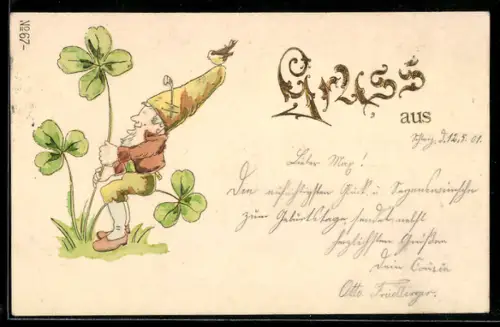 No 67-
Gruss
aus
d. 12.5.01.
Lieber Max!
Den aufrichtigsten Glück- u. Segenswünschen
zum Geburtstage, sendet nebst
herzlichsten Grüßen
Dein Cousin
Otto